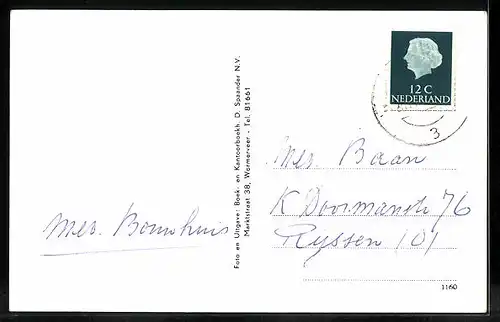 12 C
NEDERLAND
3
Foto en Uitgave: Boek- en Kantoorboekh. D. Spaander N.V.
Marktstraat 38, Wormerveer - Tel. 81661
Mej. Baan
K Doormanstr 76
Ryssen (O)
Mej. Bouwhuis
1160